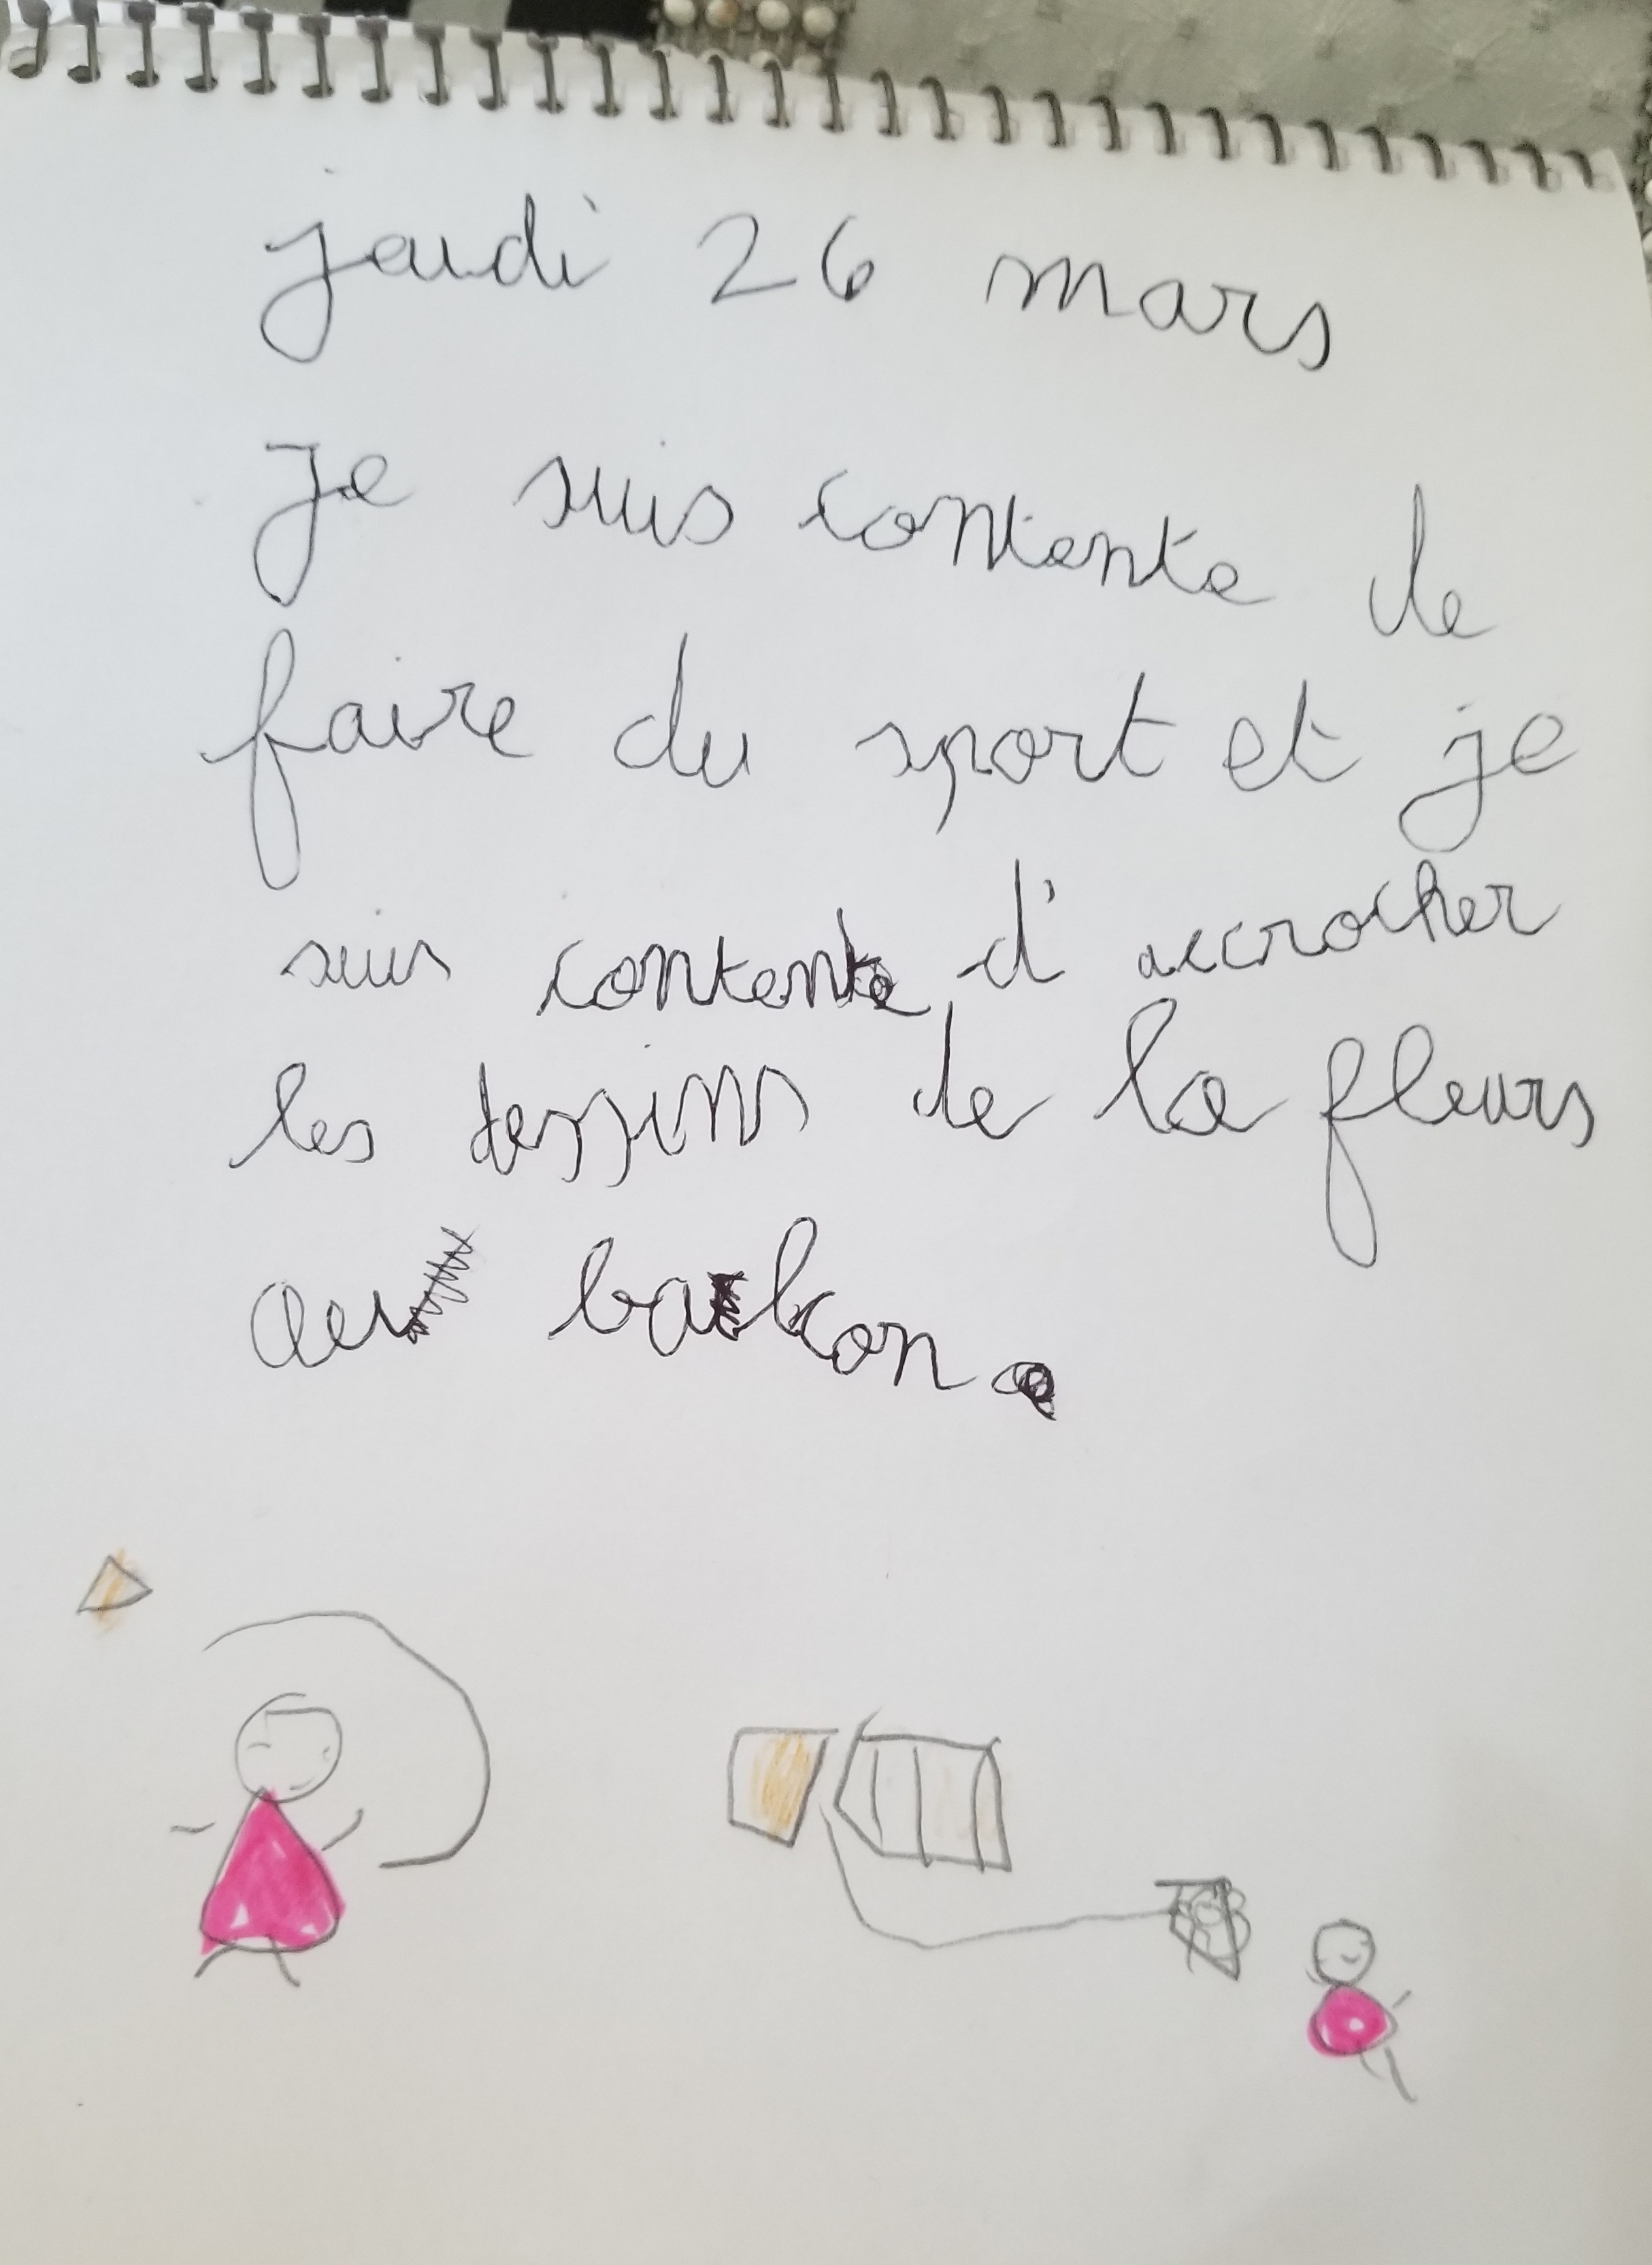 jeudi 26 mars
Je suis contente de
faire du sport et je
suis contente d'accrocher
les dessins de la fleurs
au balcon.